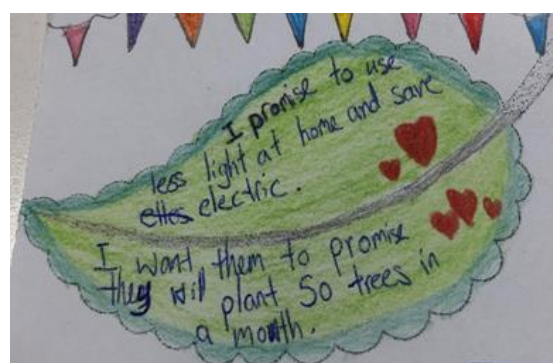 I promise to use
less light at home and save
electric.
I want them to promise
they will plant 50 trees in
a month.